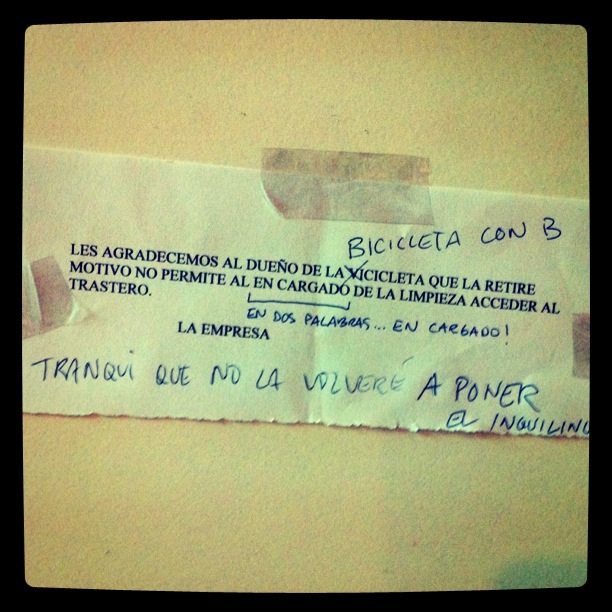 BICICLETA CON B
LES AGRADECEMOS AL DUEÑO DE LA VICICLETA QUE LA RETIRE
MOTIVO NO PERMITE AL EN CARGADO DE LA LIMPIEZA ACCEDER AL
TRASTERO.
EN DOS PALABRAS... EN CARGADO!
LA EMPRESA
TRANQUI QUE NO LA VOLVERÉ A PONER
EL INQUILINO